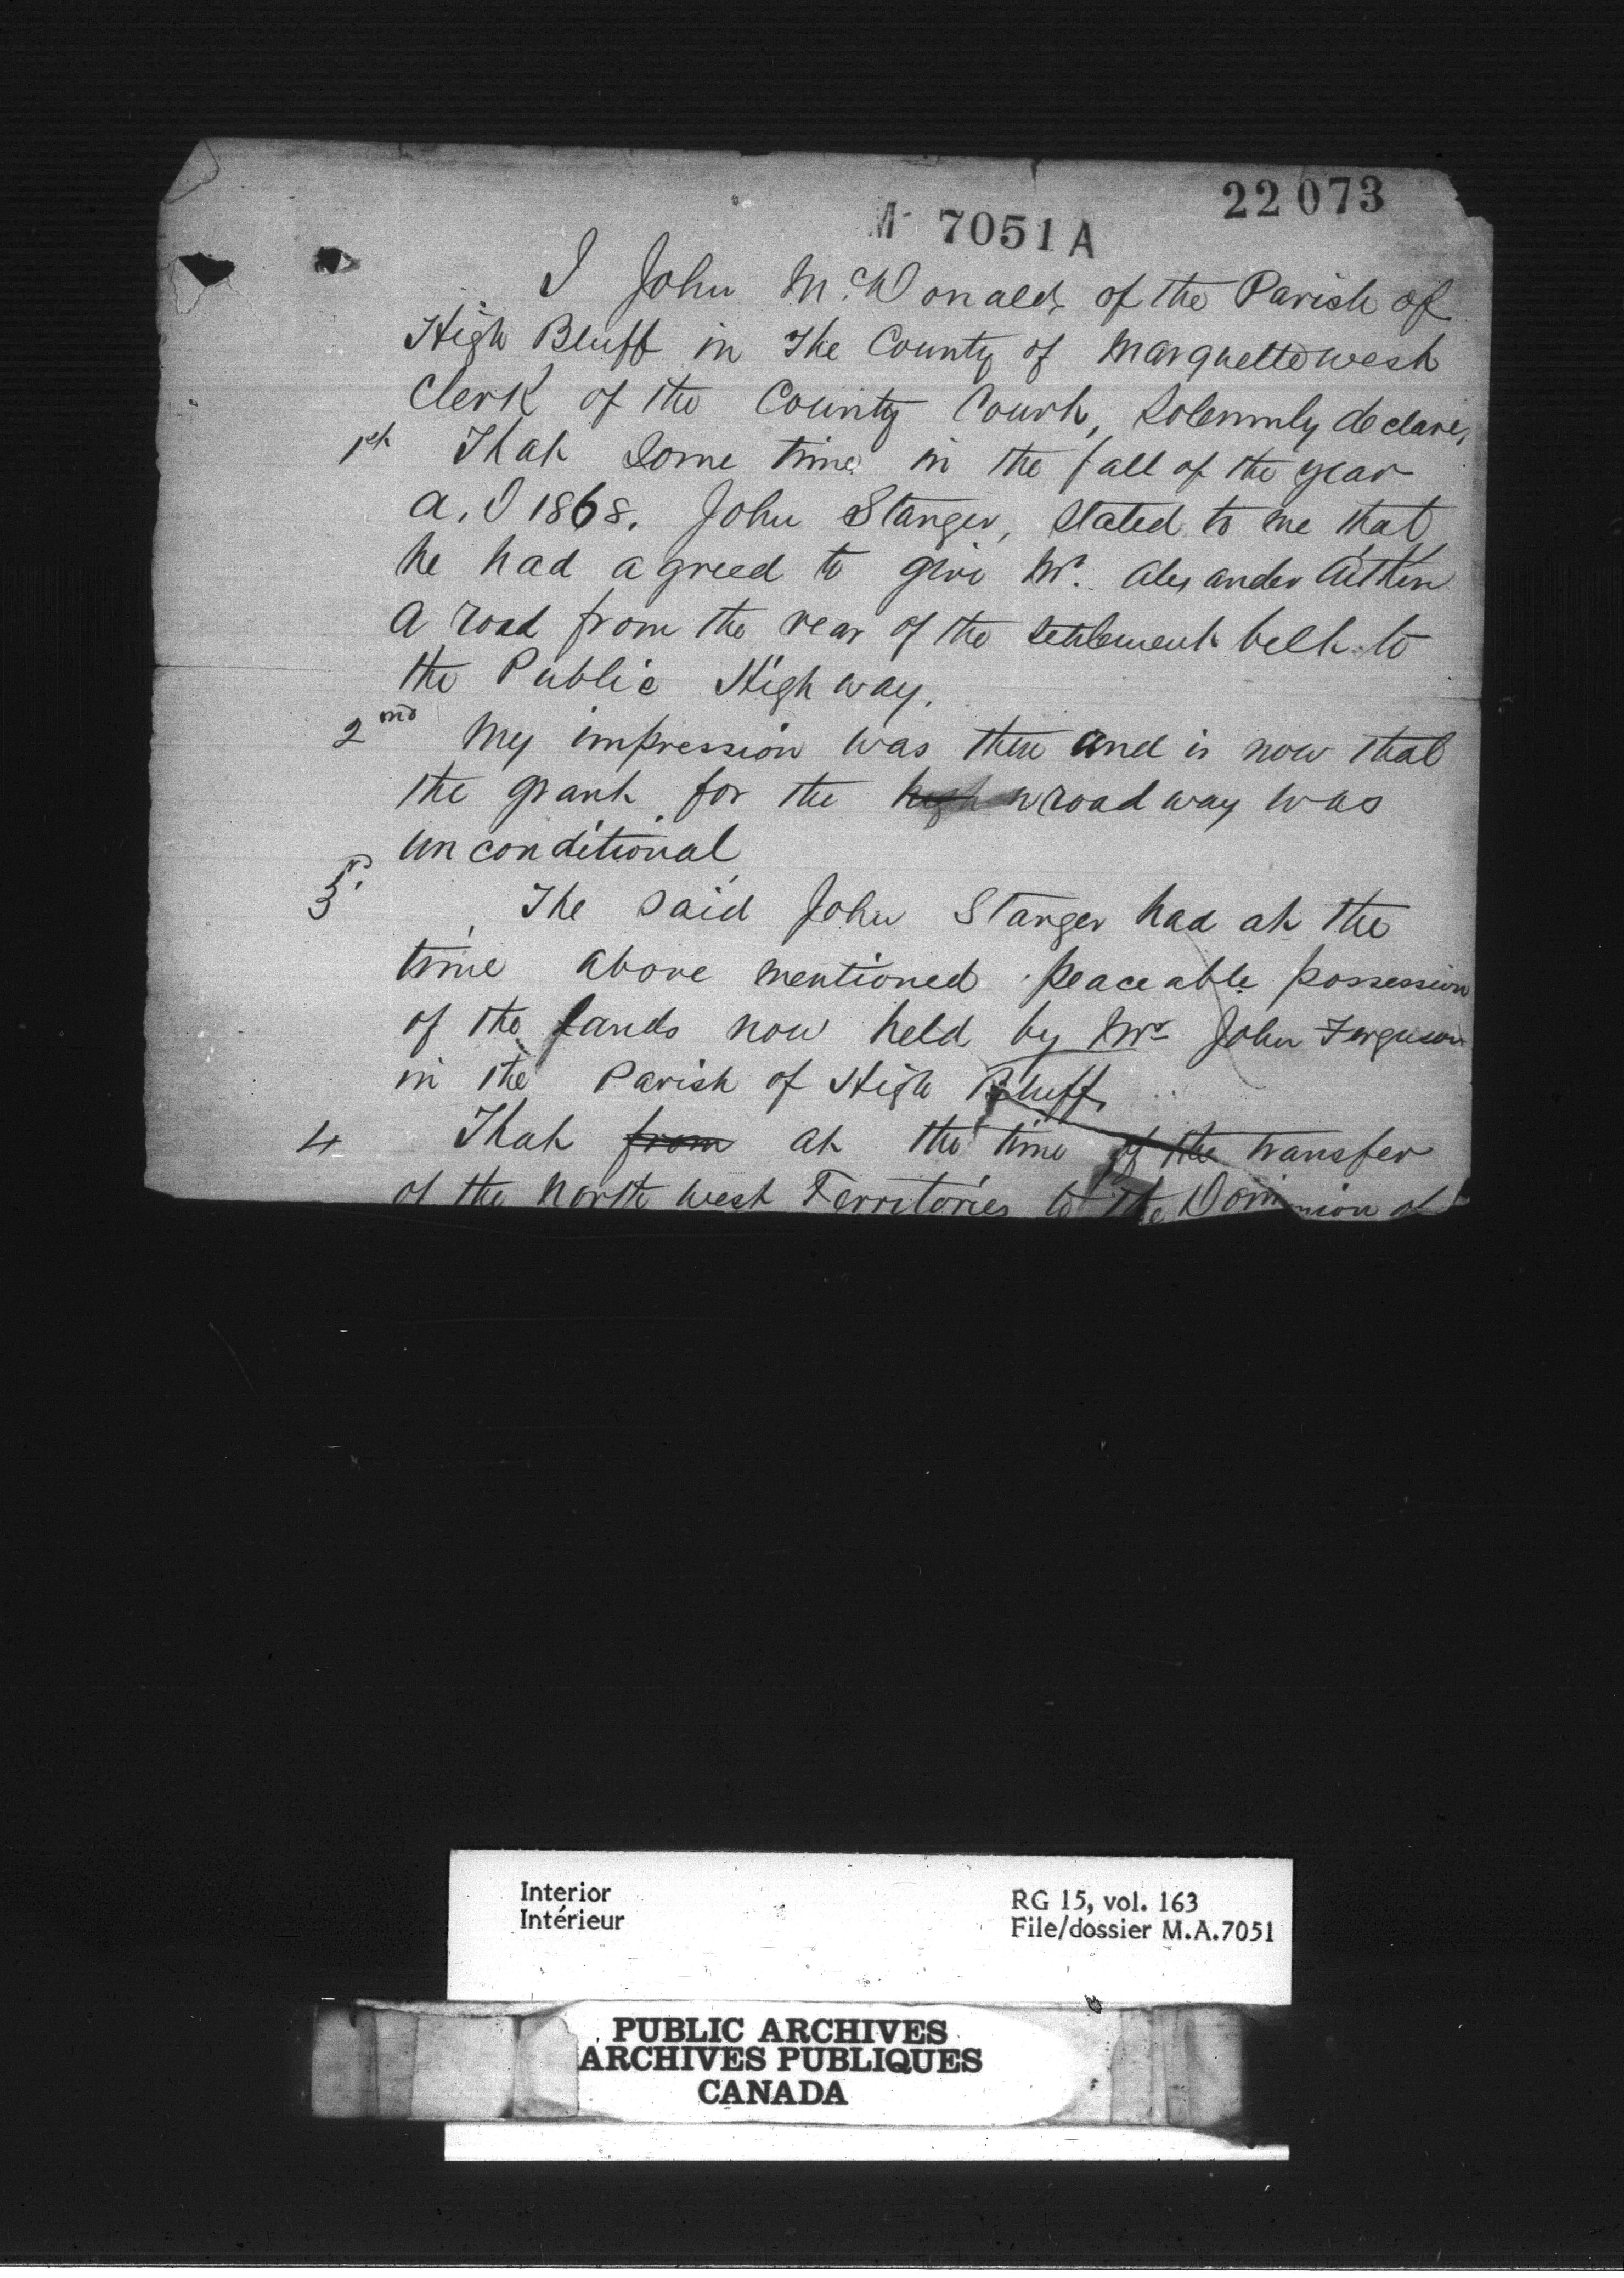 22073
M 7051 A
I John McDonald, of the Parish of
High Bluff in The County of Marquette West
Clerk of the County Court, Solemnly declare,
1st That some time in the fall of the year
A.D 1868. John Stanger, stated to me that
he had agreed to give Mr. Alexander Aitken
a road from the rear of the settlement belt to
the Public Highway.
2nd My impression was then and is now that
the grant for the high road way was
unconditional
3rd. The said John Stanger had at the
time above mentioned peaceable possession
of the lands now held by Mr John Ferguson
in the Parish of High Bluff,
4 That from at the time of the transfer
of the North West Territories to the Dominion of
Interior
Intérieur
RG 15, vol. 163
File/dossier M.A.7051
PUBLIC ARCHIVES
ARCHIVES PUBLIQUES
CANADA